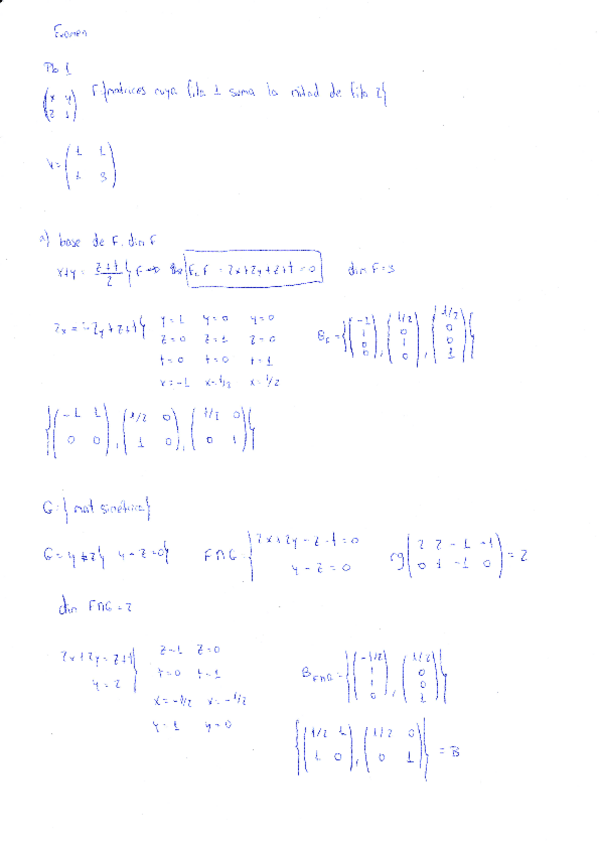 Examen
Pb 1
(x y / z t) F{matrices cuya fila 1 suma la mitad de fila 2}
v = (1 1 / 1 3)
a) base de F. dim F
x+y = (z+t)/2 } F 2x+2y+z+t=0 dim F=3
2x = -2y+z+t} y=1 y=0 y=0
z=0 z=1 z=0
t=0 t=0 t=1
x=-1 x=1/2 x=1/2
B_F = {(-1 1 0 0), (1/2 0 1 0), (1/2 0 0 1)}
{(-1 1 / 0 0), (1/2 0 / 1 0), (1/2 0 / 0 1)}
G:{mat simétrica}
G= y=z} y-z=0} F∩G {2x+2y-z-t=0 / y-z=0 rg(2 2 -1 -1 / 0 1 -1 0) = 2
dim F∩G = 2
2x+2y=z+t / y=z } z=1 z=0
t=0 t=1
x=-1/2 x=-1/2
y=1 y=0
B_F∩G = {(-1/2 1 1 0), (1/2 0 0 1)}
{(1/2 1 / 1 0), (1/2 0 / 0 1)} = B